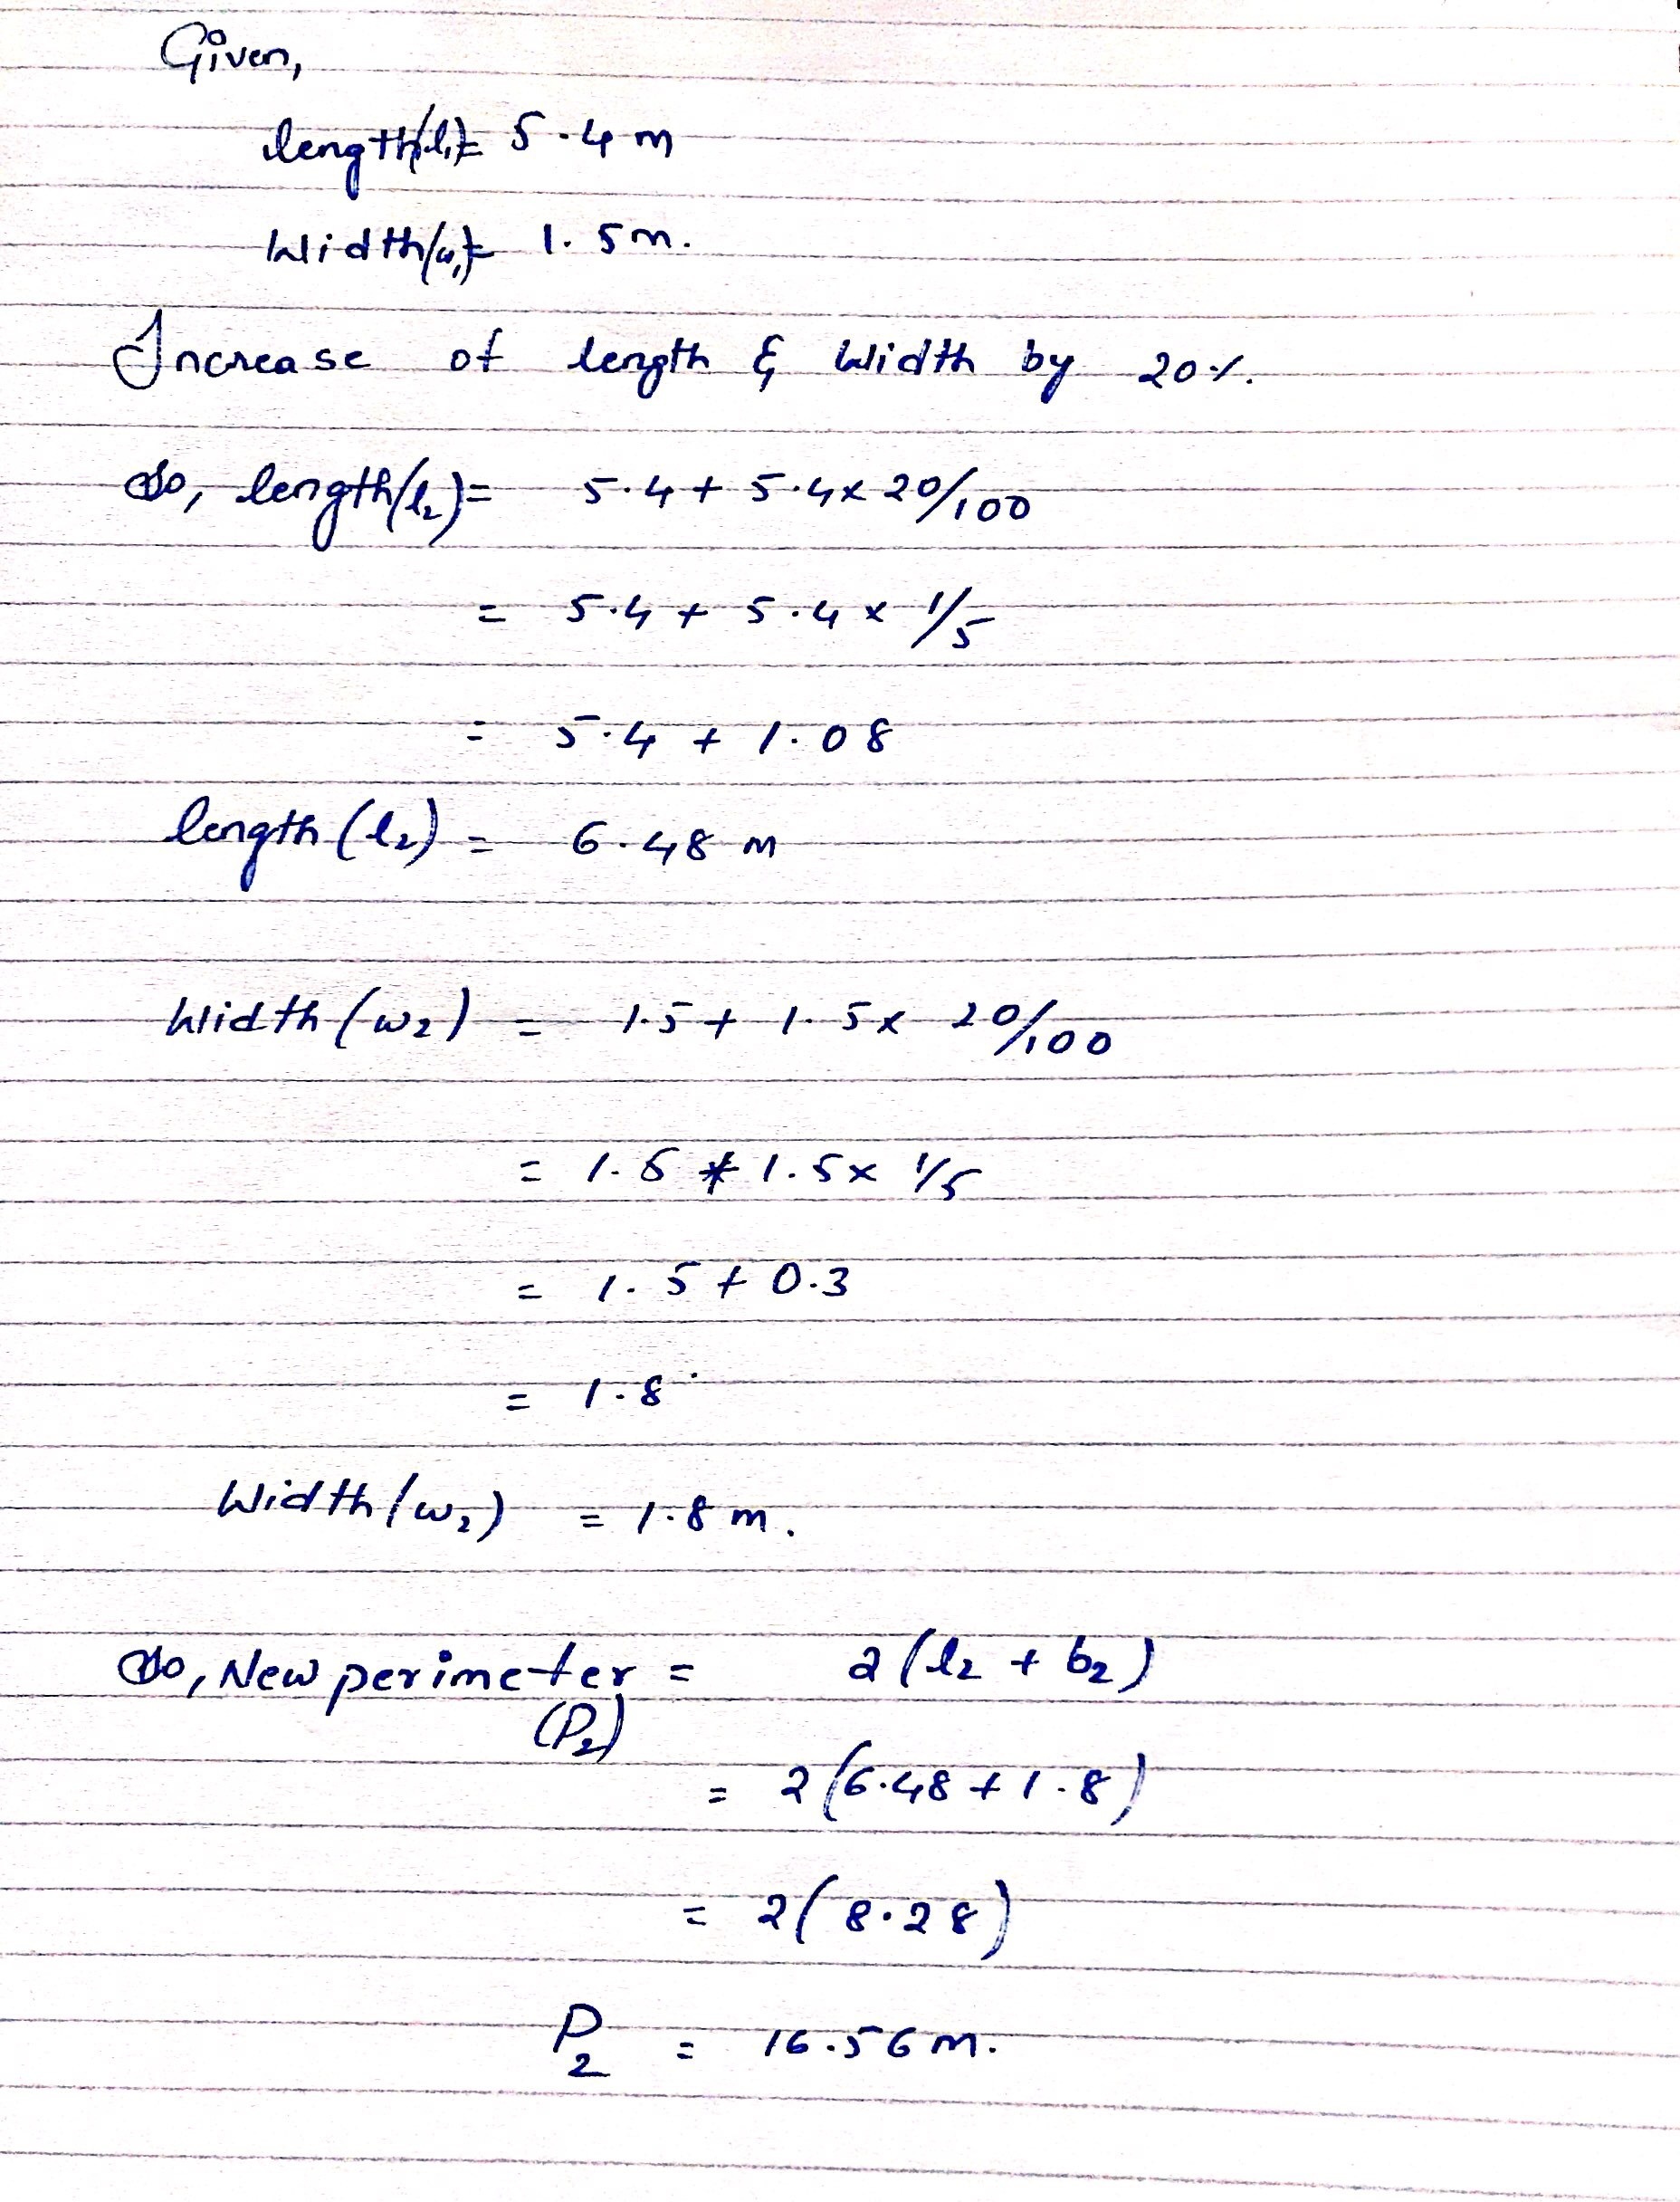 Given,
length(l₁)= 5.4 m
Width(w₁)= 1.5 m.
Increase of length & Width by 20%.
So, length(l₂)= 5.4 + 5.4 x 20/100
= 5.4 + 5.4 x 1/5
= 5.4 + 1.08
length (l₂) = 6.48 m
Width (w₂) = 1.5 + 1.5 x 20/100
= 1.5 + 1.5 x 1/5
= 1.5 + 0.3
= 1.8
Width (w₂) = 1.8 m.
So, New perimeter = 2 (l₂ + b₂)
(P₂)
= 2 (6.48 + 1.8)
= 2 (8.28)
P₂ = 16.56 m.